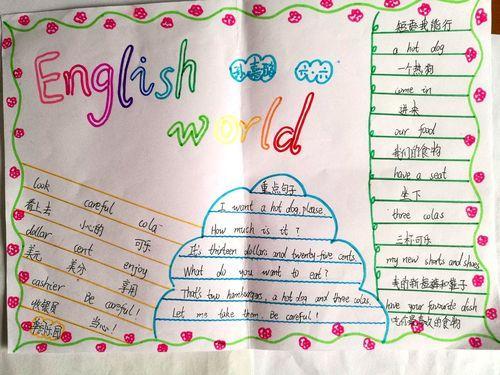 English
world
六六
look careful cola
看上去 小心的 可乐
dollar cent enjoy
美元 美分 享用
cashier Be careful!
收银员 当心!
重点句子
I want a hot dog, please.
How much is it?
It's thirteen dollars and twenty-five cents.
What do you want to eat?
That's two hamburgers, a hot dog and three colas.
Let me take them. Be careful!
短语我能行
a hot dog
一个热狗
come in
进来
our food
我们的食物
have a seat
坐下
three colas
三杯可乐
my new shorts and shoes
我的新短裤和鞋子
have your favourite dish
吃你最喜欢的食物